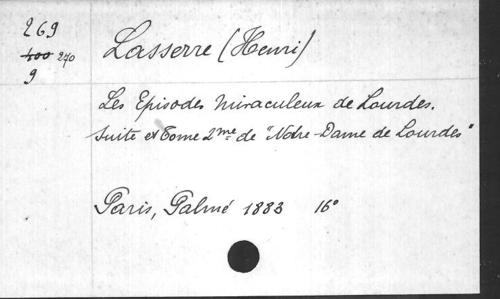 269
400 270
9
Lasserre (Henri)
Les Episodes miraculeux de Lourdes.
Suite et Tome 2me de "Notre-Dame de Lourdes"
Paris, Palmé 1883 16°